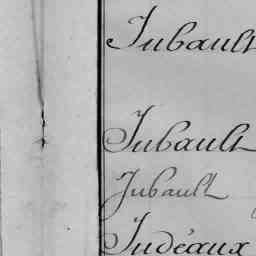 Jubault
Jubault
Jubault
Judéaux